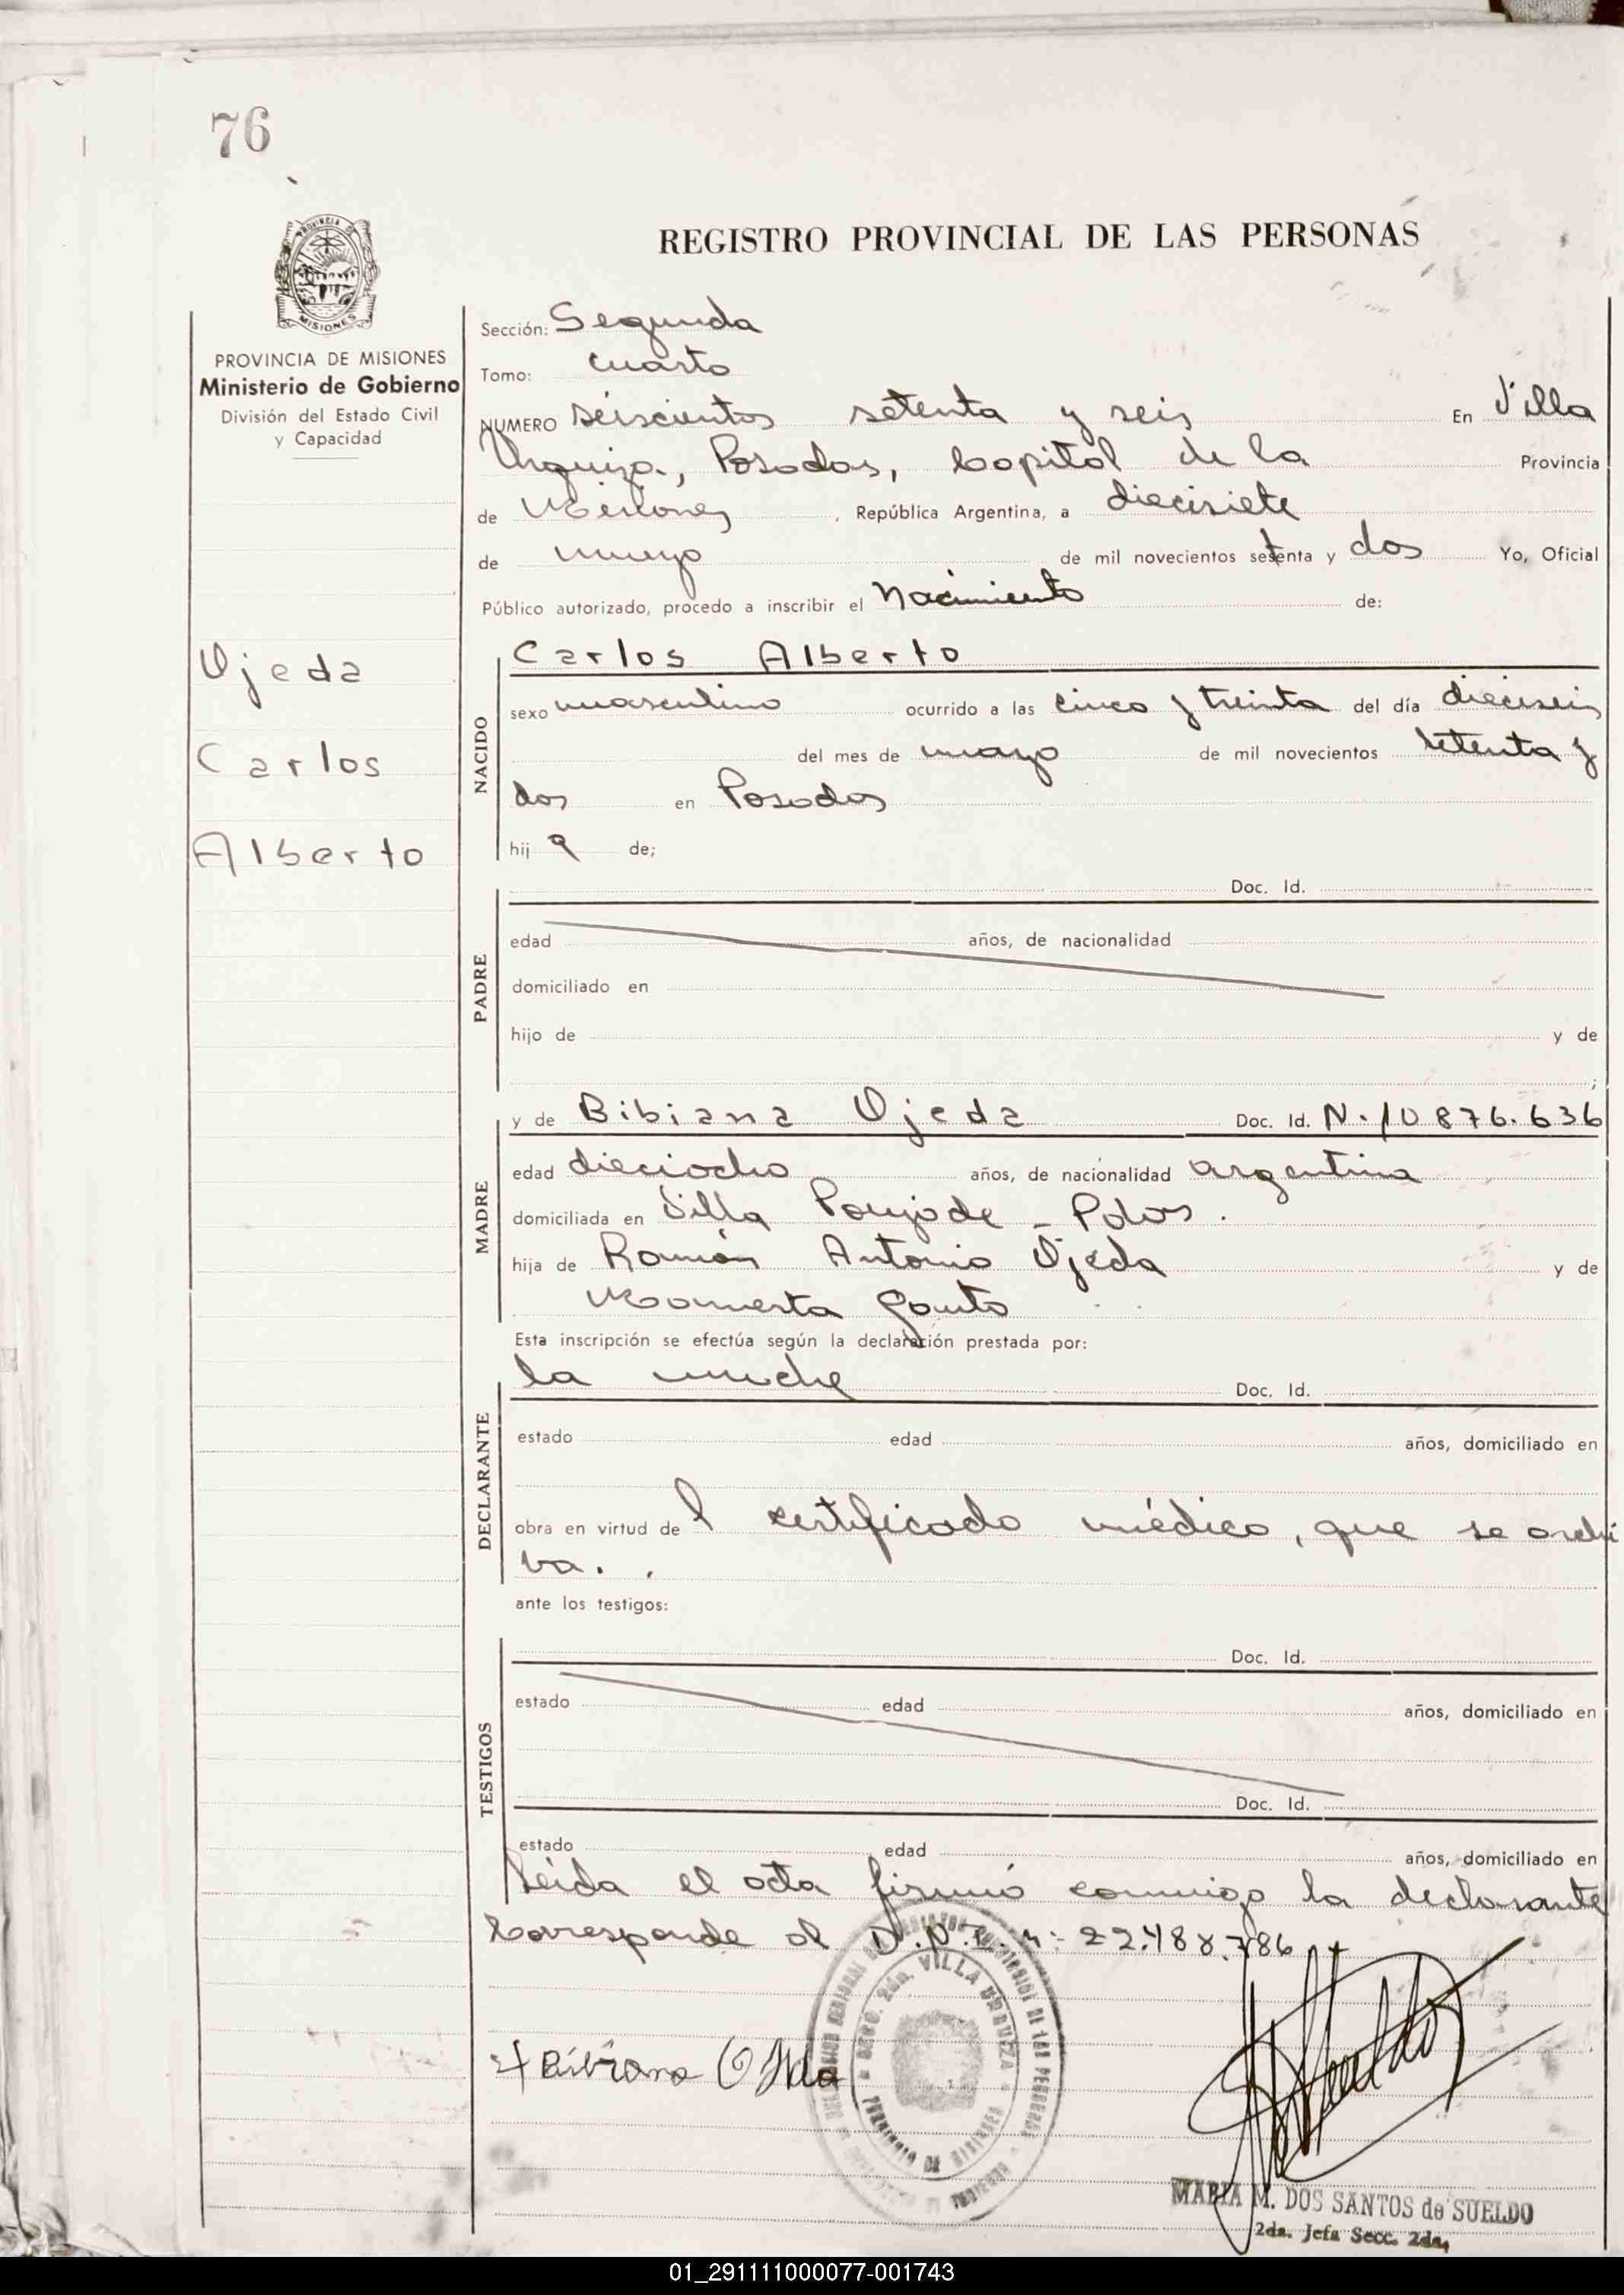 76
PROVINCIA DE
MISIONES
REGISTRO PROVINCIAL DE LAS PERSONAS
PROVINCIA DE MISIONES
Ministerio de Gobierno
División del Estado Civil
y Capacidad
Sección: Segunda
Tomo: cuarto
NUMERO seiscientos setenta y seis En Villa
Urquiza, Posadas, Capital de la Provincia
de Misiones, República Argentina, a diecisiete
de mayo de mil novecientos setenta y dos Yo, Oficial
Público autorizado, procedo a inscribir el Nacimiento de:
Ojeda
Carlos
Alberto
NACIDO
Carlos Alberto
sexo masculino ocurrido a las cinco y treinta del día dieciseis
del mes de mayo de mil novecientos setenta y
dos en Posadas
hij o de;
PADRE
Doc. Id.
edad años, de nacionalidad
domiciliado en
hijo de y de
;
MADRE
y de Bibiana Ojeda Doc. Id. N. 10876.636
edad dieciocho años, de nacionalidad argentina
domiciliada en Villa Poujade - Pdas.
hija de Ramón Antonio Ojeda y de
Esta inscripción se efectúa según la declaración prestada por:
DECLARANTE
la madre Doc. Id.
estado edad años, domiciliado en
obra en virtud de l certificado médico, que se archi
va.
ante los testigos:
TESTIGOS
Doc. Id.
estado edad años, domiciliado en
Doc. Id.
estado edad años, domiciliado en
Leida el acta firmó conmigo la declarante
Corresponde al D.N.I. n: 22.488.786
Bibiana Ojeda
SECC. 2da. VILLA URQUIZA
PROVINCIA DE MISIONES
MARIA M. DOS SANTOS de SUELDO
2da. Jefa Secc. 2da.
01_291111000077-001743